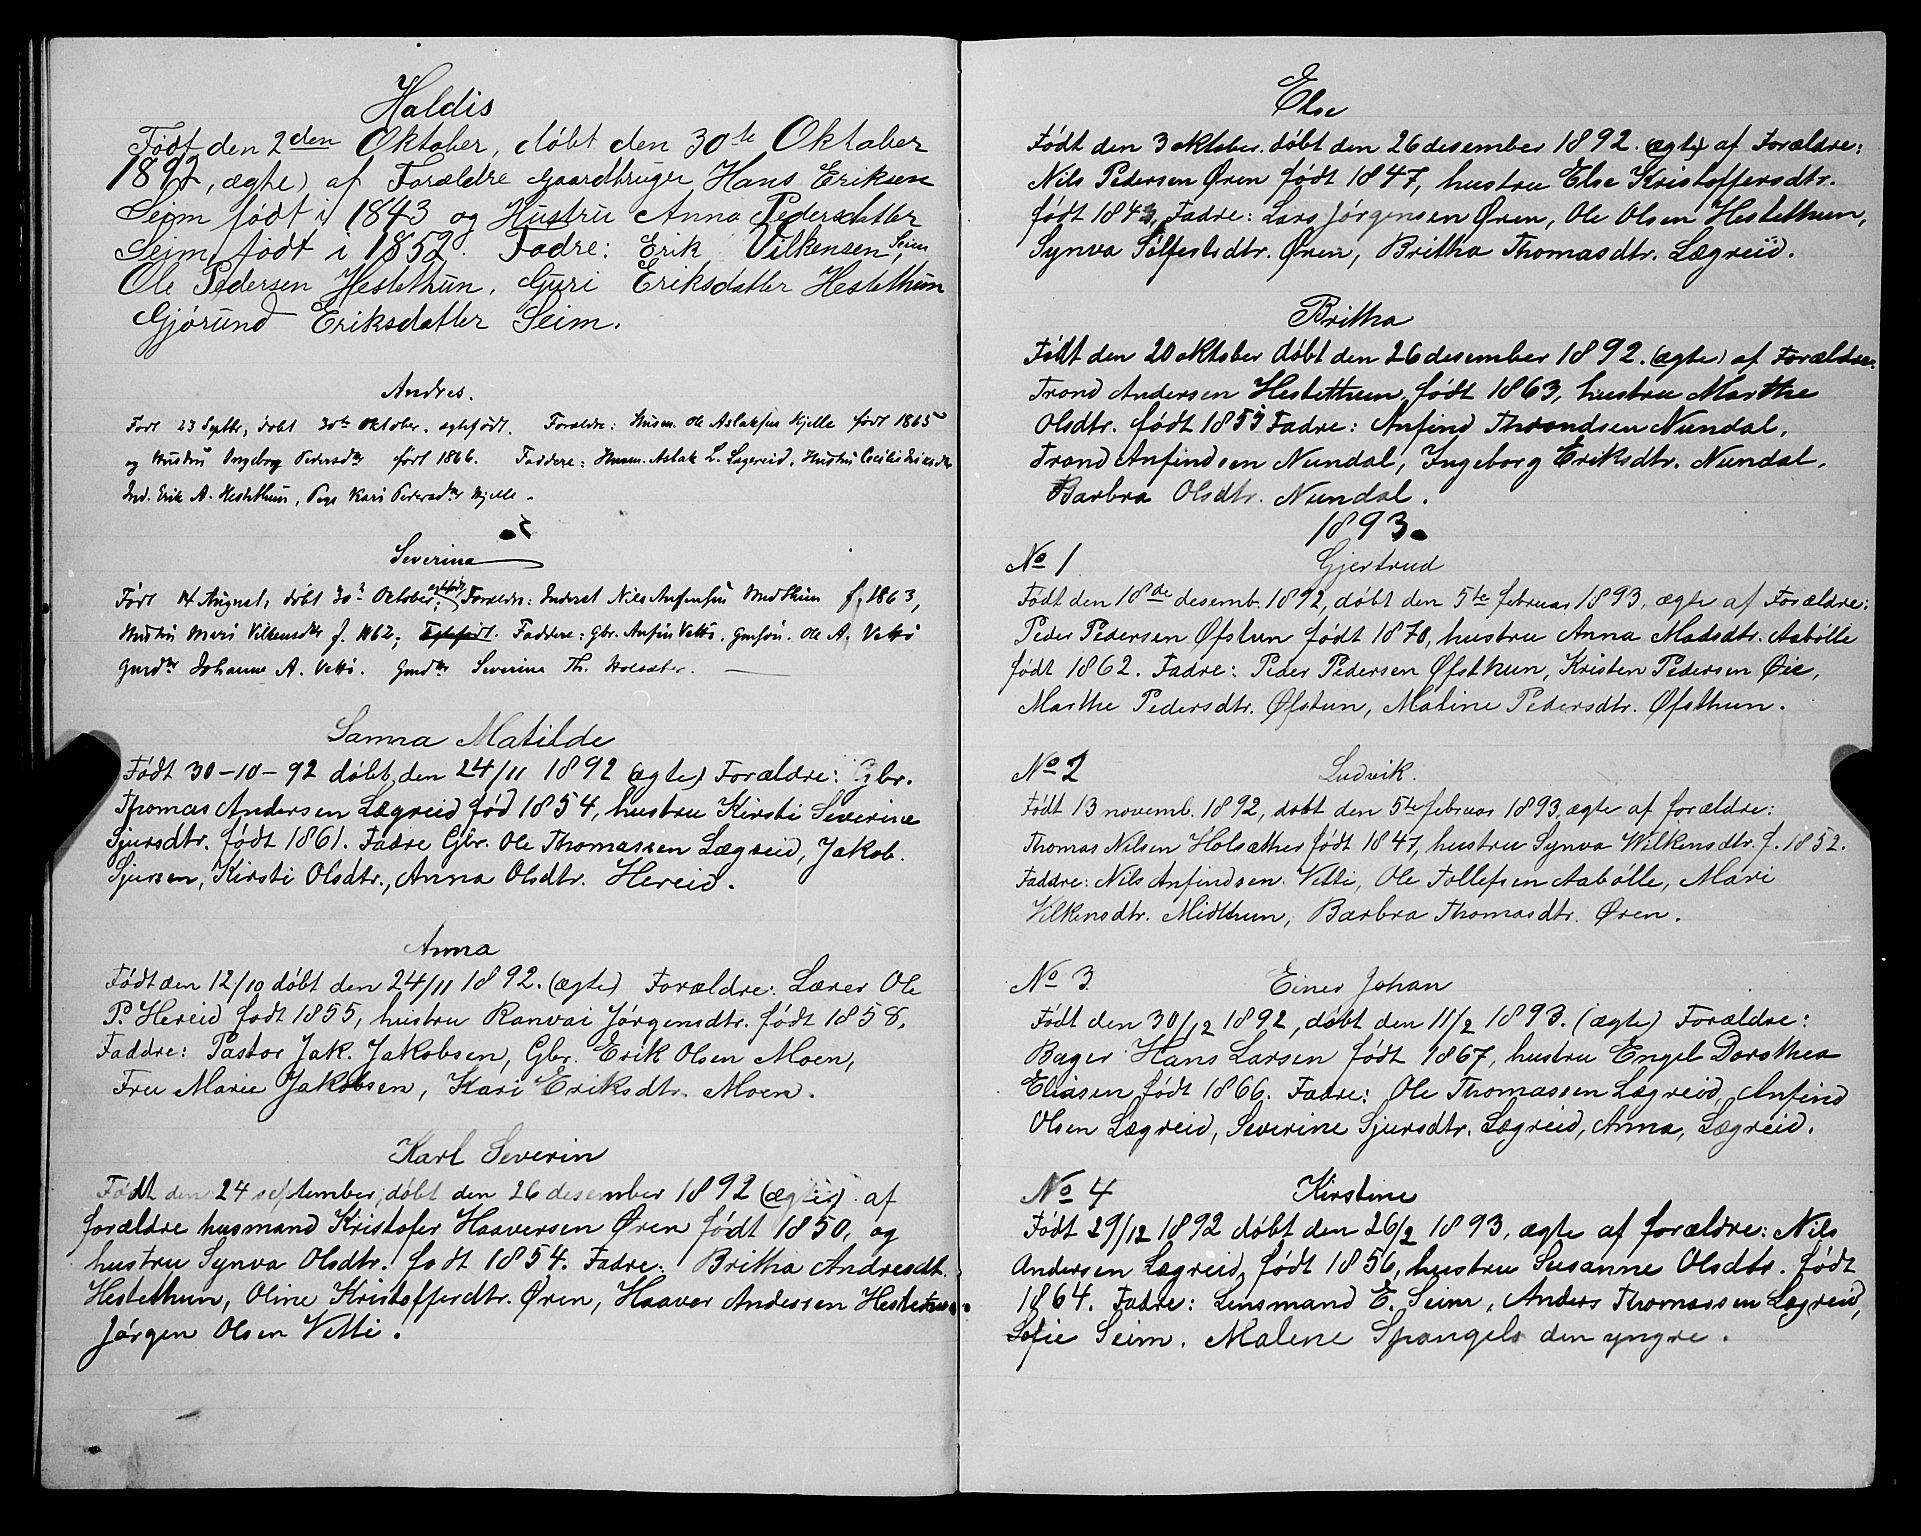 Haldis
Født den 2den Oktober, døbt den 30te Oktober
1892, ægte) af Forældre Gaardbruger Hans Eriksen
Seim født i 1843 og Hustru Anna Pedersdatter
Seim født i 1852. Fadre: Erik Vilkensen Seim,
Ole Pedersen Hestethun, Guri Eriksdatter Hestethun
Gjørund Eriksdatter Seim.
Andres.
Født 23 Septbr, døbt 30te Oktober. ægtefødt. Foraldre: Husm. Ole Aslaksen Hjelle født 1865
og Hustru Ingeborg Pedersdtr født 1866. Faddere: Husm. Aslak L. Lægreid, Hustru Cecilie Eriksdtr
Ind. Erik A. Hestethun, Pige Kari Pedersdtr Hjelle.
Severina
Født 14 August, døbt 30te Oktober; ægtefødt, Foraldre: Inderst Nils Anfinsen Midthun f. 1863,
Hustru Mari Vilkensdtr f. 1862; Faddere: Gbr. Anfin Vetti, Gmsøn. Ole A. Vetti
Gmdtr Johanne A. Vetti. Gmdtr Severine Th. Holsæter.
Sanna Matilde
Født 30-10-92 døbt den 24/11 1892 (ægte) Forældre: Gbr.
Thomas Andersen Lægreid fød 1854, hustru Kirsti Severine
Sjursdtr. født 1861. Fadre Gbr. Ole Thomassen Lægreid, Jakob
Sjursen, Kirsti Olsdtr., Anna Olsdtr. Hereid.
Anna
Født den 12/10 døbt den 24/11 1892. (ægte) Forældre: Lærer Ole
P. Hereid født 1855, hustru Ranvai Jørgensdtr. født 1858.
Faddre: Pastor Jak. Jakobsen, Gbr. Erik Olsen Moen,
Fru Marie Jakobsen, Kari Eriksdtr. Moen.
Karl Severin
Født den 24 september, døbt den 26 desember 1892 (ægte) af
forældre husmand Kristofer Haaversen Øren født 1850, og
hustru Synva Olsdtr. født 1854. Fadre: Britha Andresdt.
Hestethun, Oline Kristofferdtr. Øren, Haaver Andersen Hestethun,
Jørgen Olsen Vetti.
Else
Født den 3 oktober. døbt den 26 desember 1892. (ægte) af Forældre:
Nils Pedersen Øren født 1847, hustru Else Kristoffersdtr.
født 1843, Fadre: Lars Jørgensen Øren, Ole Olsen Hestethun,
Synva Sølfestsdtr. Øren, Britha Thomasdtr. Lægreid.
Britha
Født den 20 oktober døbt den 26 desember 1892. (ægte) af Forældre:
Trond Andersen Hestetthun, født 1863, hustru Marthe
Olsdtr. født 1855 Fadre: Anfind Throndsen Nundal,
Trond Anfindsen Nundal, Ingeborg Eriksdtr. Nundal.
Barbra Olsdtr. Nundal.
1893.
No 1 Gjertrud
Født den 18de desemb. 1892, døbt den 5te februar 1893, ægte af Forældre:
Peder Pedersen Øfstun født 1870, hustru Anna Madsdtr. Aabølle
født 1862. Fadre: Peder Pedersen Øfsthun, Kristen Pedersen Øie,
Marthe Pedersdtr. Øfstun, Maline Pedersdtr. Øfsthun.
No 2 Ludvik.
Født 13 novemb. 1892, døbt den 5te februar 1893, ægte af forældre:
Thomas Nilsen Holsæther født 1847, hustru Synva Wilkensdtr. f. 1852.
Faddre: Nils Anfindsen Vetti, Ole Tollefsen Aabølle, Mari
Vilkensdtr. Midthun, Barbra Thomasdtr. Øren.
No 3 Einer Johan
Født den 30/12 1892, døbt den 11/2 1893. (ægte) Forældre:
Bager Hans Larsen født 1867, hustru Engel Dorothea
Eliasen født 1866. Fadre: Ole Thomassen Lægreid, Anfind
Olsen Lægreid, Severine Sjursdtr. Lægreid, Anna, Lægreid.
No 4 Kirstine
Født 29/12 1892 døbt den 26/2 1893, ægte af forældre: Nils
Andersen Lægreid, født 1856, hustru Susanne Olsdtr. født
1864. Fadre: Lensmand E. Seim, Anders Thomassen Lægreid,
Sofie Seim. Malene Spangelo den yngre.